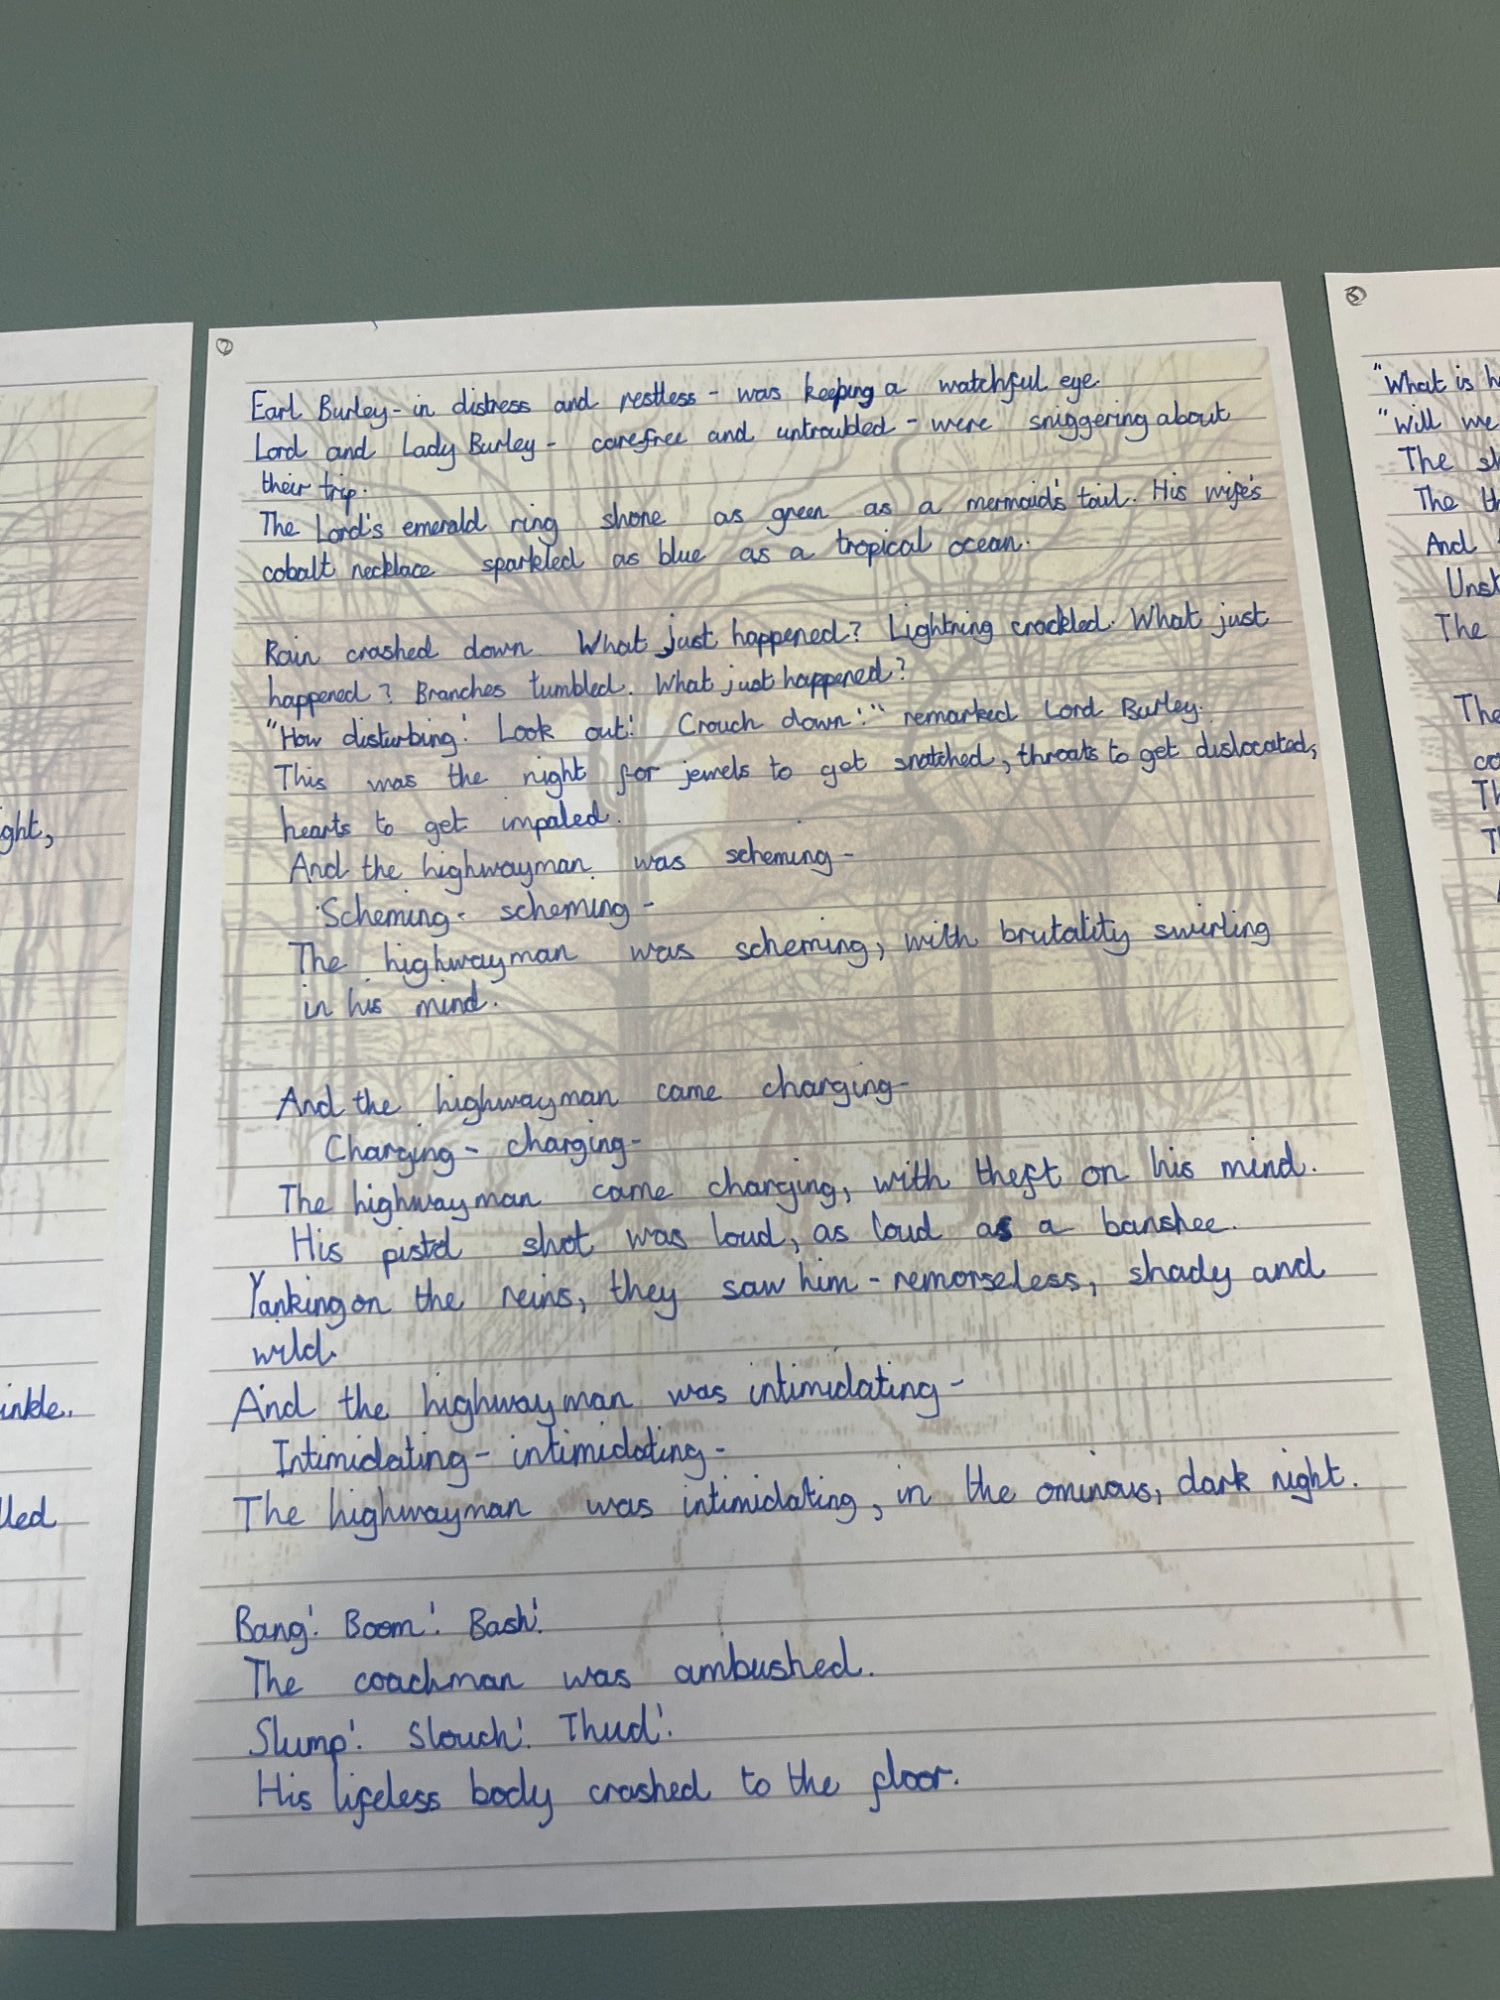 2
Earl Burley - in distress and restless - was keeping a watchful eye.
Lord and Lady Burley - carefree and untroubled - were sniggering about
their trip.
The Lord's emerald ring shone as green as a mermaid's tail. His wife's
cobalt necklace sparkled as blue as a tropical ocean.
Rain crashed down What just happened? Lightning crackled. What just
happened? Branches tumbled. What just happened?
"How disturbing! Look out! Crouch down!" remarked Lord Burley.
This was the night for jewels to get snatched, throats to get dislocated,
hearts to get impaled.
And the highwayman was scheming -
Scheming - scheming -
The highwayman was scheming, with brutality swirling
in his mind.
And the highwayman came charging -
Charging - charging -
The highwayman came charging, with theft on his mind.
His pistol shot was loud, as loud as a banshee.
Yanking on the reins, they saw him - remorseless, shady and
wild.
And the highwayman was intimidating -
Intimidating - intimidating -
The highwayman was intimidating, in the ominous, dark night.
Bang! Boom! Bash!
The coachman was ambushed.
Slump! Slouch! Thud!
His lifeless body crashed to the floor.
ght,
inkle.
lled
3
"What is h
"Will we
The sh
The
And
Unst
The
The
co
Th